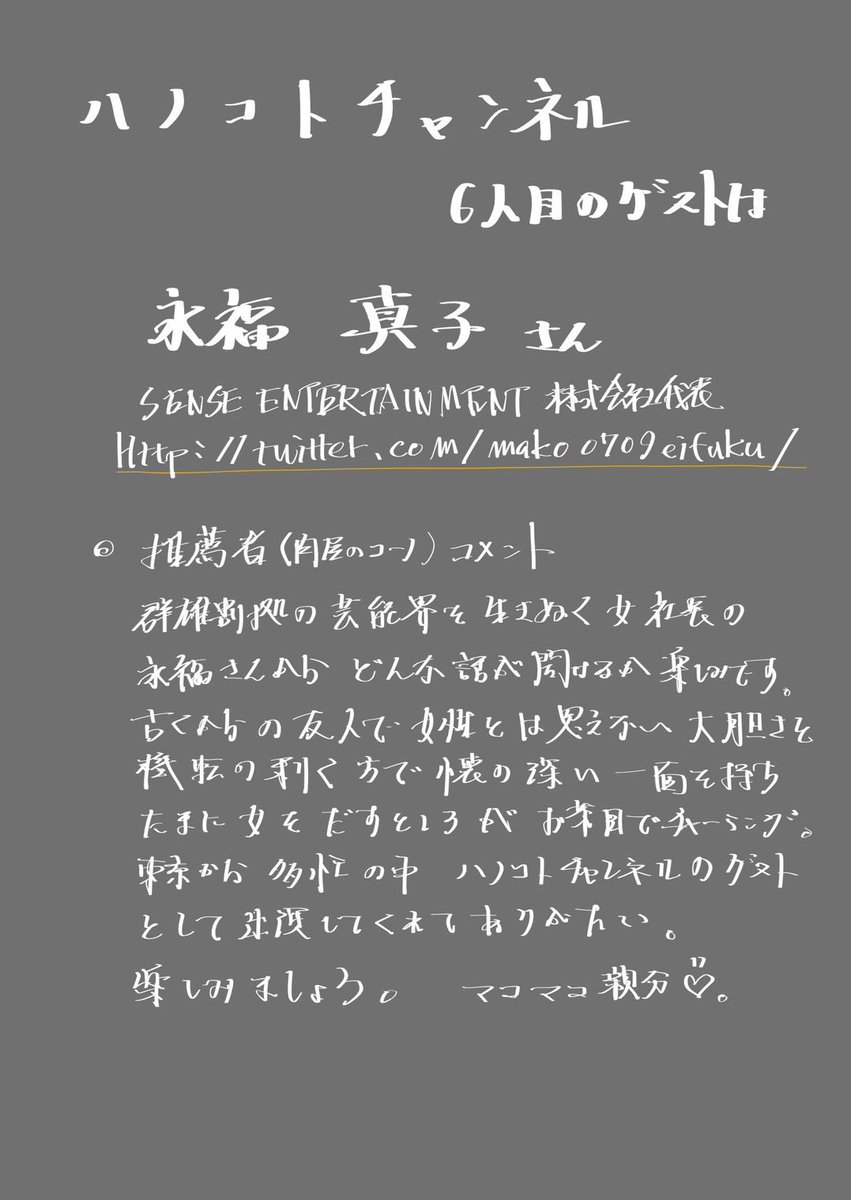 ハノコトチャンネル
6人目のゲストは
永福 真子 さん
SENSE ENTERTAINMENT 株式会社代表
Http://twitter.com/mako0709eifuku/
◎ 推薦者(肉屋のコーノ)コメント
群雄割拠の芸能界を生きぬく女社長の
永福さんから どんな話が聞けるか楽しみです。
古くからの友人で女性とは思えない大胆さと
機転の利く方で懐の深い一面を持ち
たまに女をだすところもが お茶目でチャーミング。
東京から多忙の中 ハノコトチャンネルのゲスト
として 来てくれてありがたい。
楽しみましょう。 マコマコ親分♡。